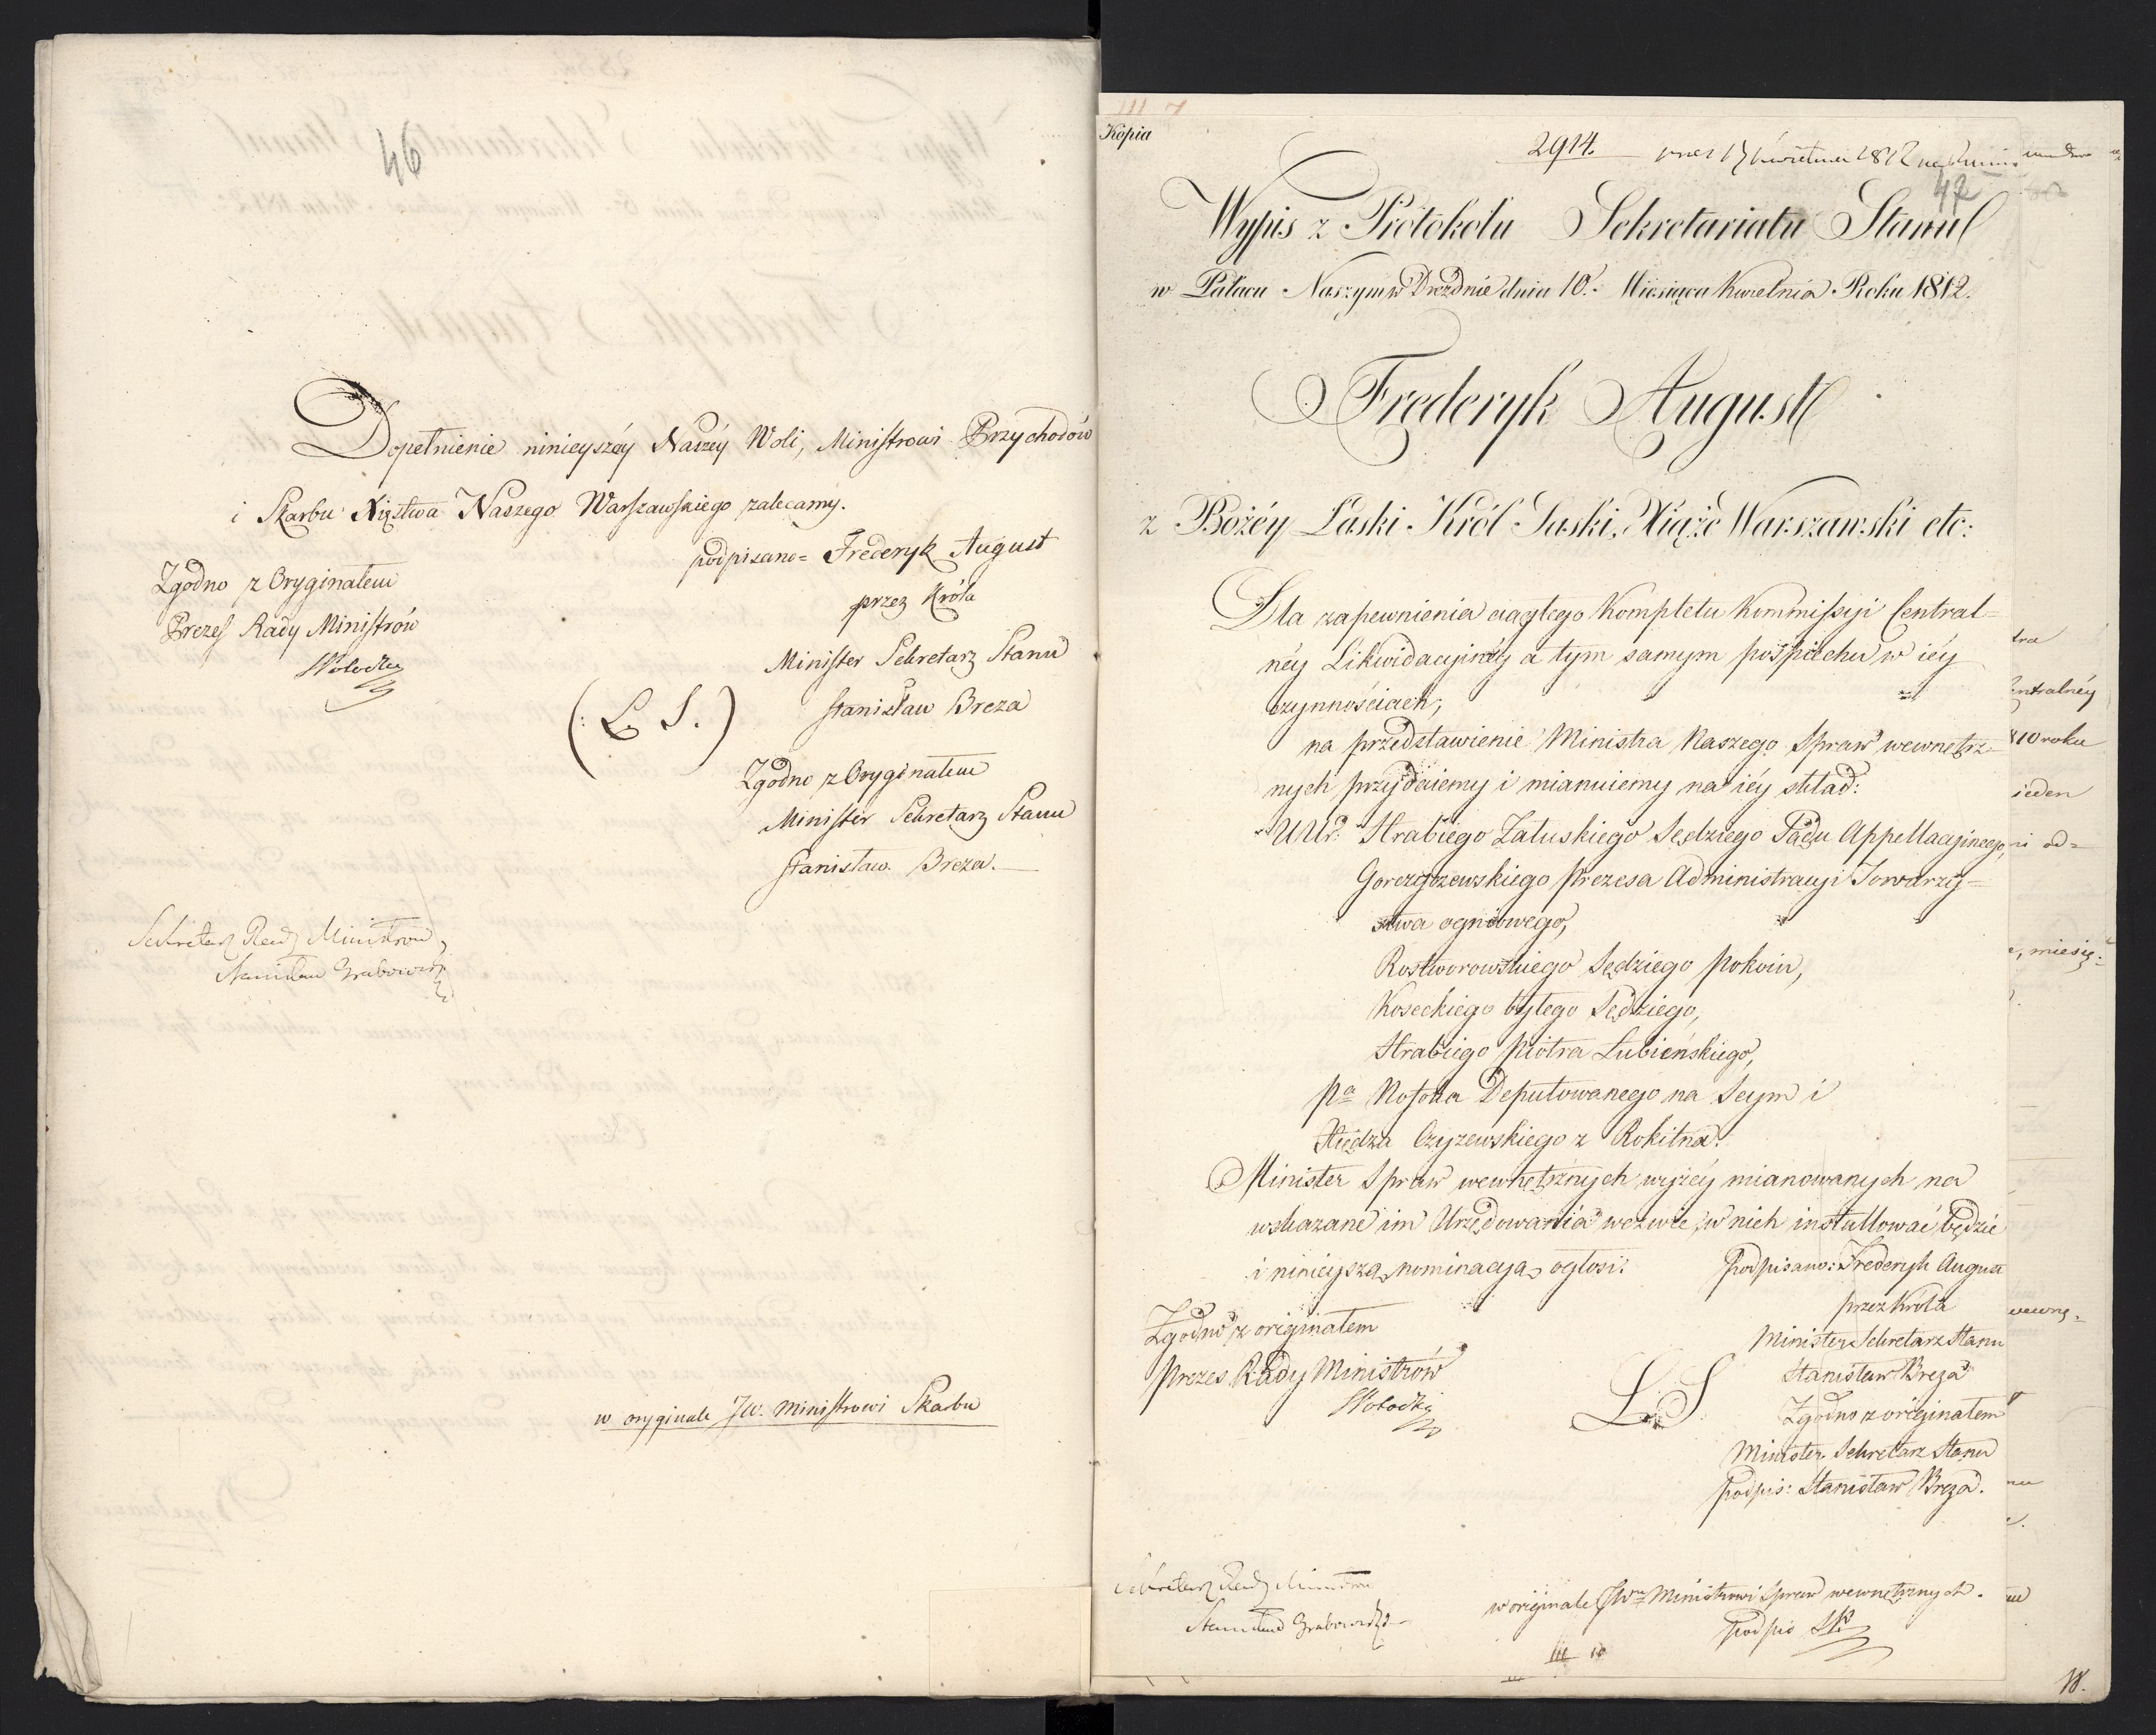 46
Dopełnienie ninieyszéy Naszéy Woli, Ministrowi Przychodów
i Skarbu Xięstwa Naszego Warszawskiego zalecamy.
podpisano= Frederyk August
przez Króla
Minister Sekretarz Stanu
Stanisław Breza
(: L. S. )
Zgodno z Oryginałem
Minister Sekretarz Stanu
Stanisław Breza.
Zgodno z Oryginałem
Prezes Rady Ministrów
Sekretarz Rady Ministrów
Stanisław Grabowski
w oryginale JW. Ministrowi Skarbu
Kopia
2914. 17 kwietnia 1812
47
Wypis z Protokołu Sekretariatu Stanu
w Pałacu Naszym w Dreźdnie dnia 10. Miesiąca Kwietnia Roku 1812.
Frederyk August
z Bożéy Łaski Król Saski, Xiąże Warszawski etc:
Dla zapewnienia ciągłego Kompletu Kommissyi Central=
néy Likwidacyinéy a tym samym pośpiechu w iéy
czynnościach;
na przedstawienie Ministra Naszego Spraw wewnętrz=
nych przydaiemy i mianuiemy na iéy skład:
UUr: Hrabiego Załuskiego Sędziego Sądu Appellacyinego,
Gorczyczewskiego Prezesa Administracyi Towarzy=
stwa ogniowego,
Rostworowskiego Sędziego Pokoiu,
Koseckiego byłego Sędziego,
Hrabiego Piotra Łubieńskiego,
Pa Nosoka Deputowanego na Seym i
Xiędza Czyżewskiego z Rokitna.
Minister Spraw wewnętrznych wyżéy mianowanych na
wskazane im Urzędowania wezwie, w nich installować będzie
i ninieyszą nominacyą ogłosi.
Podpisano: Frederyk August
przez Króla
Minister Sekretarz Stanu
Stanisław Breza
L S
Zgodno z originałem
Minister Sekretarz Stanu
podpis: Stanisław Breza.
Zgodno z originałem
Prezes Rady Ministrów
Sekretarz Rady Ministrów
Stanisław Grabowski
w originale JWu Ministrowi Spraw wewnętrznych.
podpis
tra
entralnéy
810 roku
ieden
i od=
e, miesię=
wewnę=
18.